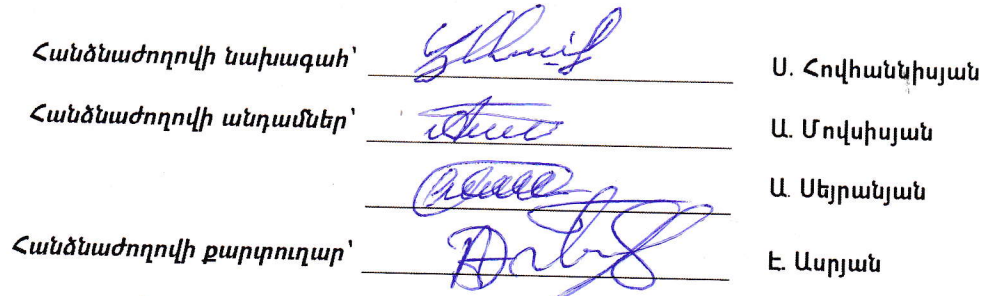 Հանձնաժողովի նախագահ՝ Ս. Հովհաննիսյան
Հանձնաժողովի անդամներ՝ Ա. Մովսիսյան
Ա. Սեյրանյան
Հանձնաժողովի քարտուղար՝ Է. Ասրյան